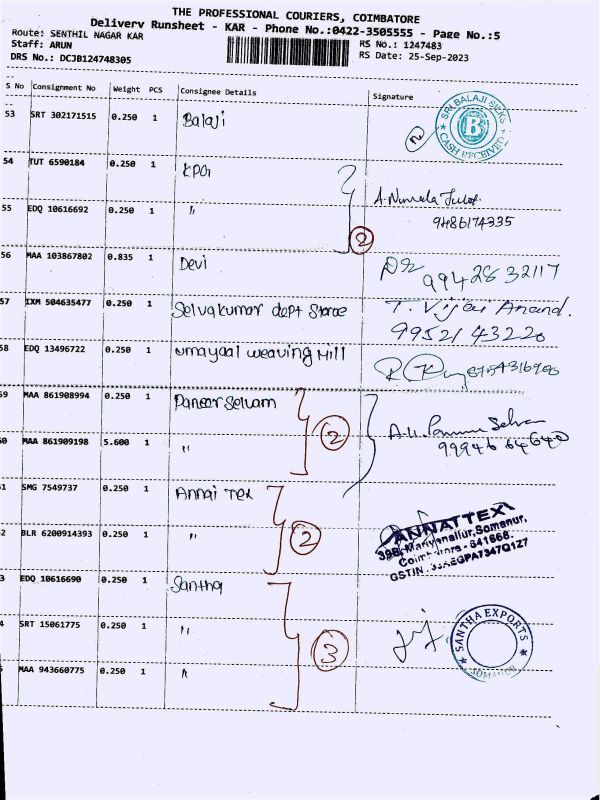 THE PROFESSIONAL COURIERS, COIMBATORE
Delivery Runsheet - KAR - Phone No.:0422-3505555 - Page No.:5
Route: SENTHIL NAGAR KAR
RS No.: 1247483
Staff: ARUN
RS Date: 25-Sep-2023
DRS No.: DCJB124748305
S No Consignment No Weight PCS Consignee Details Signature
53 SRT 302171515 0.250 1 Balaji
SRI BALAJI SILKS
B
CASH RECEIVED
2
54 TUT 6590184 0.250 1 KPG
55 EDQ 10616692 0.250 1 "
2
9486174335
56 MAA 103867802 0.835 1 Devi
99428 32117
57 IXM 504635477 0.250 1 Selvakumar dept Storoe
T. Vijay Anand.
99521 43220
58 EDQ 13496722 0.250 1 umayaal weaving Mill
59 MAA 861908994 0.250 1 Paneer Selvam
2
60 MAA 861909198 5.600 1 "
99946 64640
61 SMG 7549737 0.250 1 Annai Tex
2
62 BLR 6200914393 0.250 1 "
ANNAI TEX
39B, Mariyanallur, Somanur,
Coimbatore - 641668.
3 EDQ 10616690 0.250 1 Santha
4 SRT 15061775 0.250 1 "
3
SANTHA EXPORTS
SOMANUR
MAA 943660775 0.250 1 "